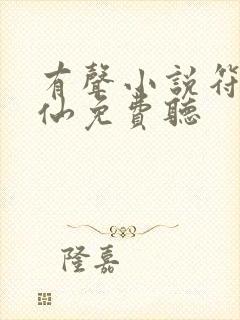 有聲小說符
仙免費聽
隆嘉